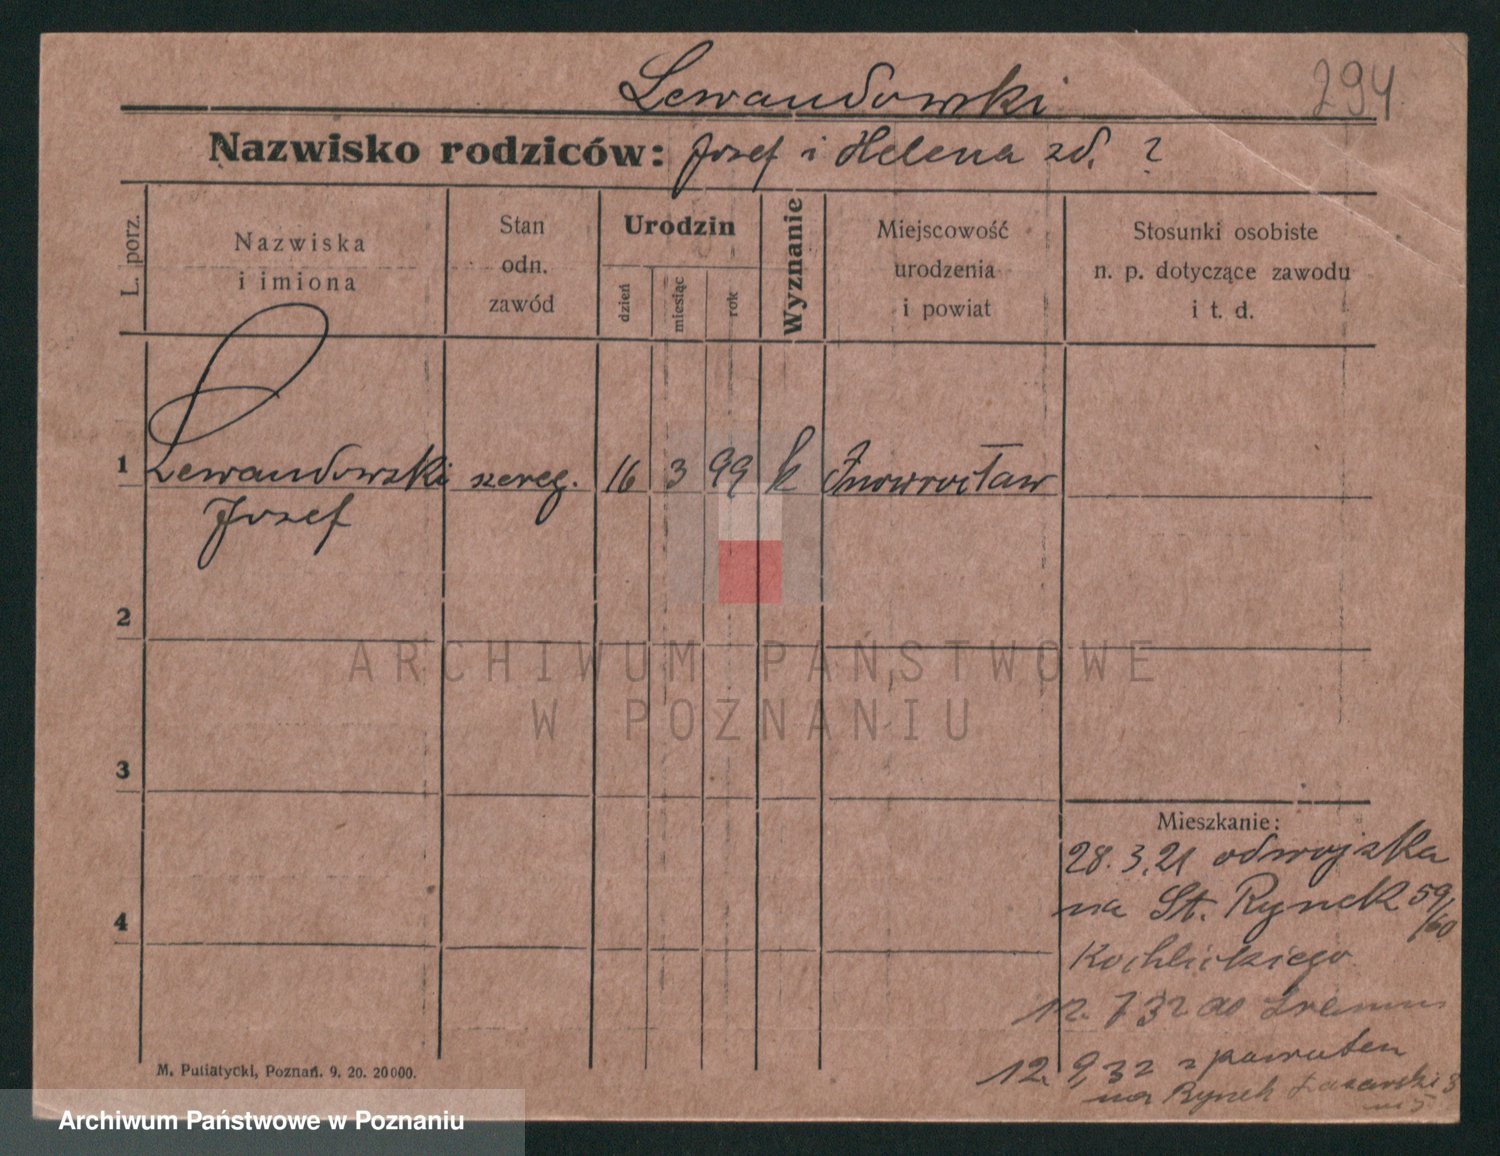 Lewandowski
294
Nazwisko rodziców: Jozef i Helena zd. ?
L. porz.
Nazwiska
i imiona
Stan
odn.
zawód
Urodzin
dzień
miesiąc
rok
Wyznanie
Miejscowość
urodzenia
i powiat
Stosunki osobiste
n. p. dotyczące zawodu
i t. d.
1
Lewandowski szereg. 16 3 99 k Inowrocław
Jozef
2
ARCHIWUM PAŃSTWOWE
W POZNANIU
3
Mieszkanie:
28.3.21 od wojska
na St. Rynek 59/60
4
Kochlickiego
12. 7 32 do Śremu
12. 9. 32 z powrotem
na Rynek Łazarski 8
M. Putiatycki, Poznań. 9. 20. 20000.
Archiwum Państwowe w Poznaniu